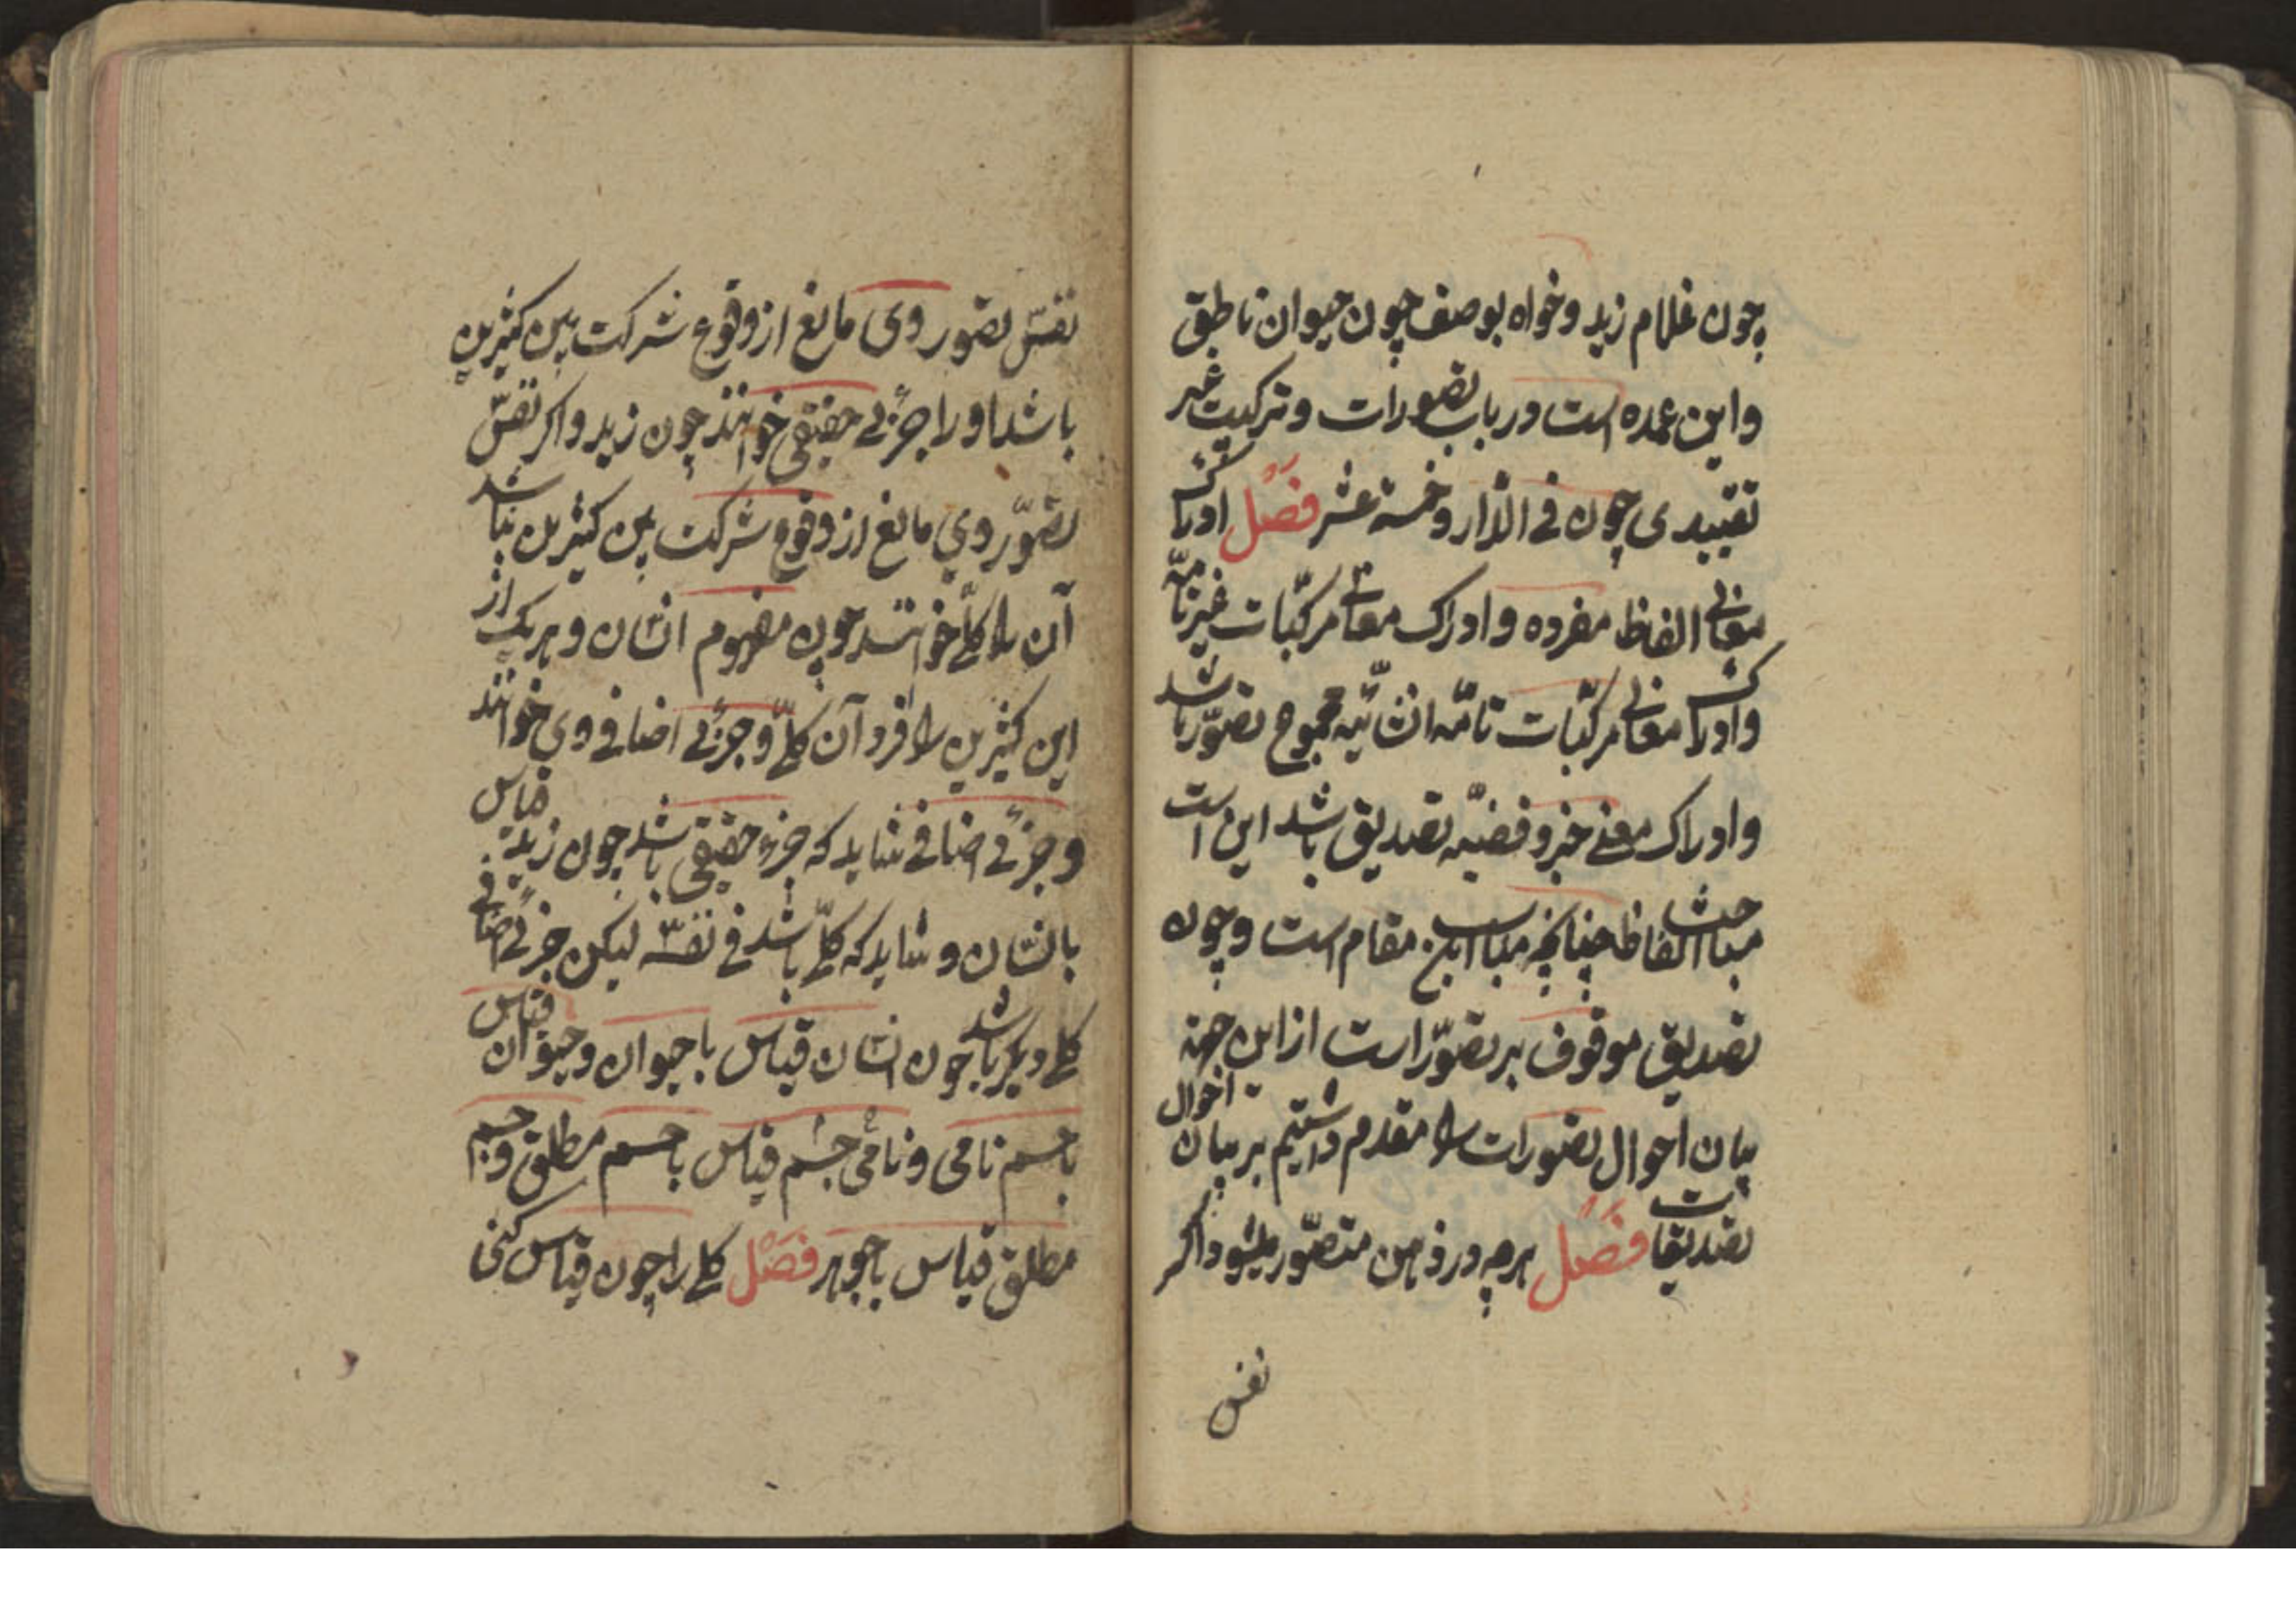 چون غلام زید و خواه بوصف چون حیوان ناطق
و این عمده است در باب تصورات و ترکیب غیر
تقییدی چون فی الدّار و خمسة عشر فَصْل ادراک
معانی الفاظ مفرده و ادراک معانی مرکّبات غیر تامّه
و ادراک معانی مرکّبات تامّه انشائیّه مجموع تصوّر باشد
و ادراک معنی خبر و قضیّه تصدیق باشد این است
مباحث الفاظ چنانچه مناسب این مقام است و چون
تصدیق موقوف بر تصوّر است از این جهة
بیان احوال تصورات را مقدم داشتیم بر بیان احوال
تصدیقات فَصْل هر چه در ذهن متصّور میشود اگر
نفس
نفس تصّور وی مانع از وقوع شرکت بین کثیرین
باشد او را جزئی حقیقی خوانند چون زید و اکر نفس
تصوّر وی مانع از وقوع شرکت بین کثیرین نباشد
آن را کلّی خوانند چون مفهوم انسان و هر یک از
این کثیرین را فرد آن کلّی و جزئی اضافی وی خوانند
و جزئی اضافی شاید که جزء حقیقی باشد چون زید قیاس
بانسان و شاید که کلّی باشد فی نفسه لیکن جزئی اضافی
کلی دیکر باشد چون انسان قیاس با حیوان و حیوان قیاس
با جسم نامی و نامی جسم قیاس با جسم مطلق و جسم
مطلق قیاس با جوهر فَصْل کلی را چون قیاس کنی